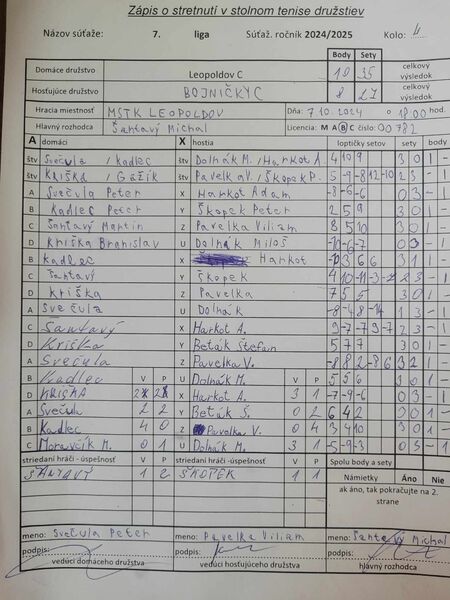 Zápis o stretnutí v stolnom tenise družstiev
Názov súťaže: 7. liga Súťaž. ročník 2024/2025 Kolo: 4
Body Sety
Domáce družstvo Leopoldov C 10 35 celkový výsledok
Hosťujúce družstvo BOJNIČKY C 8 27 celkový výsledok
Hracia miestnosť MSTK LEOPOLDOV Dňa: 7.10.2024 o 18:00 hod.
Hlavný rozhodca Šantavý Michal Licencia: M A B C číslo: 00782
A domáci X hostia loptičky setov sety body
štv Svečula / Kadlec štv Dolnák M. / Harkot A. 4 10 9 3 0 1 -
štv Kriška / Gážik štv Pavelka V. / Škopek P. 5 -9 -8 12 -10 2 3 - 1
A Svečula Peter X Harkot Adam -8 -6 -6 0 3 - 1
B Kadlec Peter Y Škopek Peter 2 5 9 3 0 1 -
C Šantavý Martin Z Pavelka Viliam 8 5 10 3 0 1 -
D Kriška Branislav U Dolnák Miloš -10 -6 -7 0 3 - 1
B Kadlec X Harkot 3 1 1 -
C Šantavý Y Škopek 4 10 -11 -3 2 3 - 1
D Kriška Z Pavelka 7 5 5 3 0 1 -
A Svečula U Dolnák -8 -4 8 1 3 - 1
C Šantavý X Harkot A. 9 -7 -7 9 -7 2 3 - 1
D Kriška Y Beták Štefan 5 7 7 3 0 1 -
A Svečula Z Pavelka V. -8 8 2 -8 6 3 2 1 -
B Kadlec V P U Dolnák M. V P 5 5 6 3 0 1 -
D KRIŠKA 2 2 X Harkot A. 3 1 -7 -9 -6 0 3 - 1
A Svečula 2 2 Y Beták Š. 0 2 6 4 2 3 0 1 -
B Kadlec 4 0 Z Pavelka V. 0 4 3 4 10 3 0 1 -
C Moravčík M. 0 1 U Dolnák M. 3 1 -5 -9 -3 0 3 - 1
striedaní hráči - úspešnosť V P striedaní hráči - úspešnosť V P Spolu body a sety
ŠANTAVÝ 1 2 ŠKOPEK 1 1 Námietky Áno Nie
ak áno, tak pokračujte na 2. strane
meno: Svečula Peter meno: Pavelka Viliam meno: Šantavý Michal
podpis: podpis: podpis:
vedúci domáceho družstva vedúci hosťujúceho družstva hlavný rozhodca